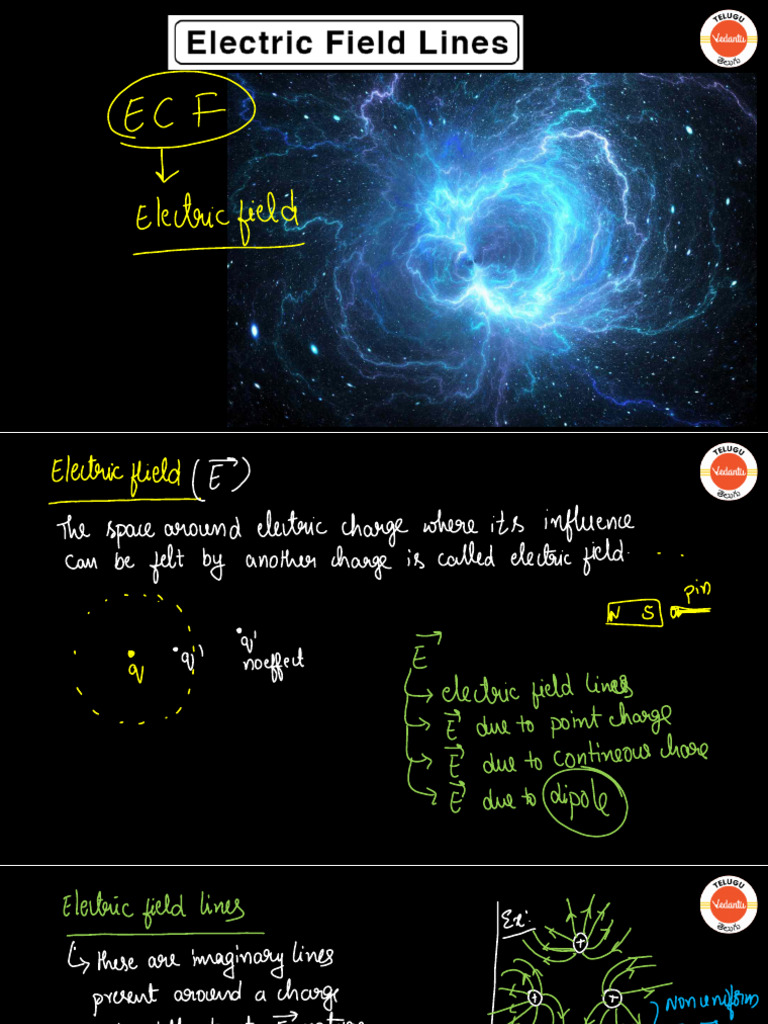 Electric Field Lines
TELUGU
Vedantu
తెలుగు
E C F
Electric field
Electric flield (E→)
TELUGU
Vedantu
తెలుగు
The space around electric charge where its influence
can be felt by another charge is called electric field. . .
pin
N S
q
q'
q'
no effect
E→
electric field lines
E→ due to point charge
E→ due to contineous chare
E→ due to dipole
Electric field lines
TELUGU
Vedantu
తెలుగు
these are imaginary lines
present around a charge
Ex:
+
+
+
non uniform